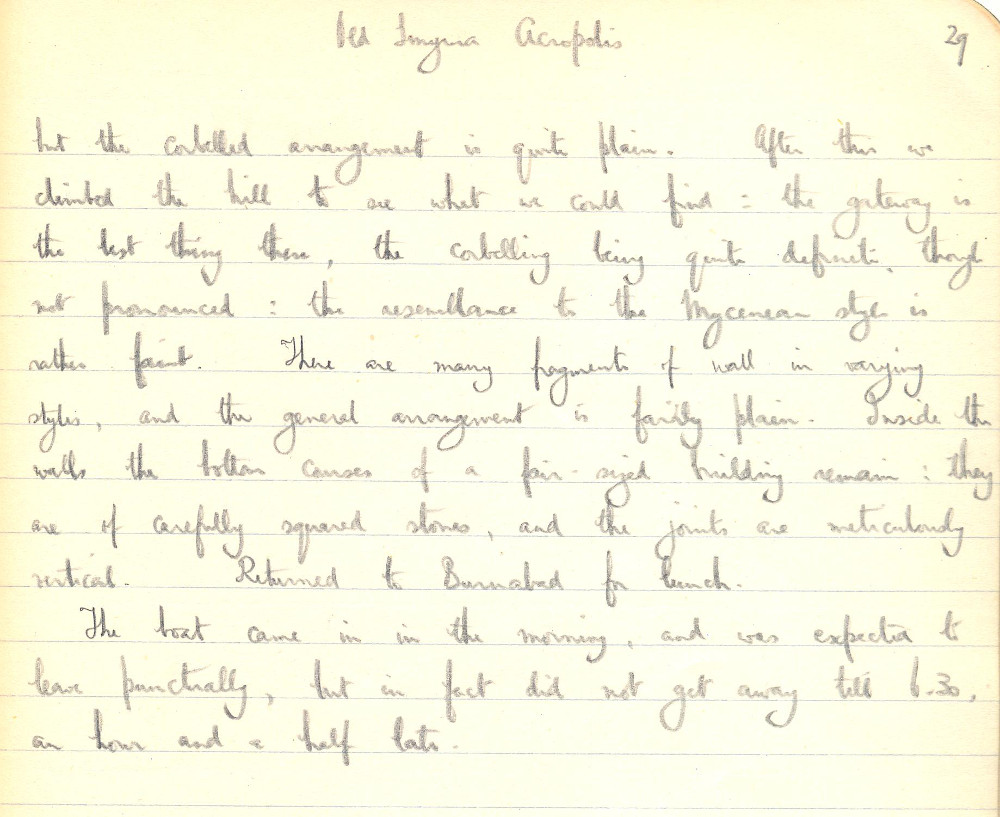 Old Smyrna Acropolis 29
but the corbelled arrangement is quite plain. After this we
climbed the hill to see what we could find : the gateway is
the best thing there, the corbelling being quite definite, though
not pronounced : the resemblance to the Mycenean style is
rather faint. There are many fragments of wall in varying
styles, and the general arrangement is fairly plain. Inside the
walls the bottom courses of a fair-sized building remain : they
are of carefully squared stones, and the joints are meticulously
vertical. Returned to Burnabad for lunch.
The boat came in in the morning, and was expected to
leave punctually, but in fact did not get away till 6.30,
an hour and a half late.